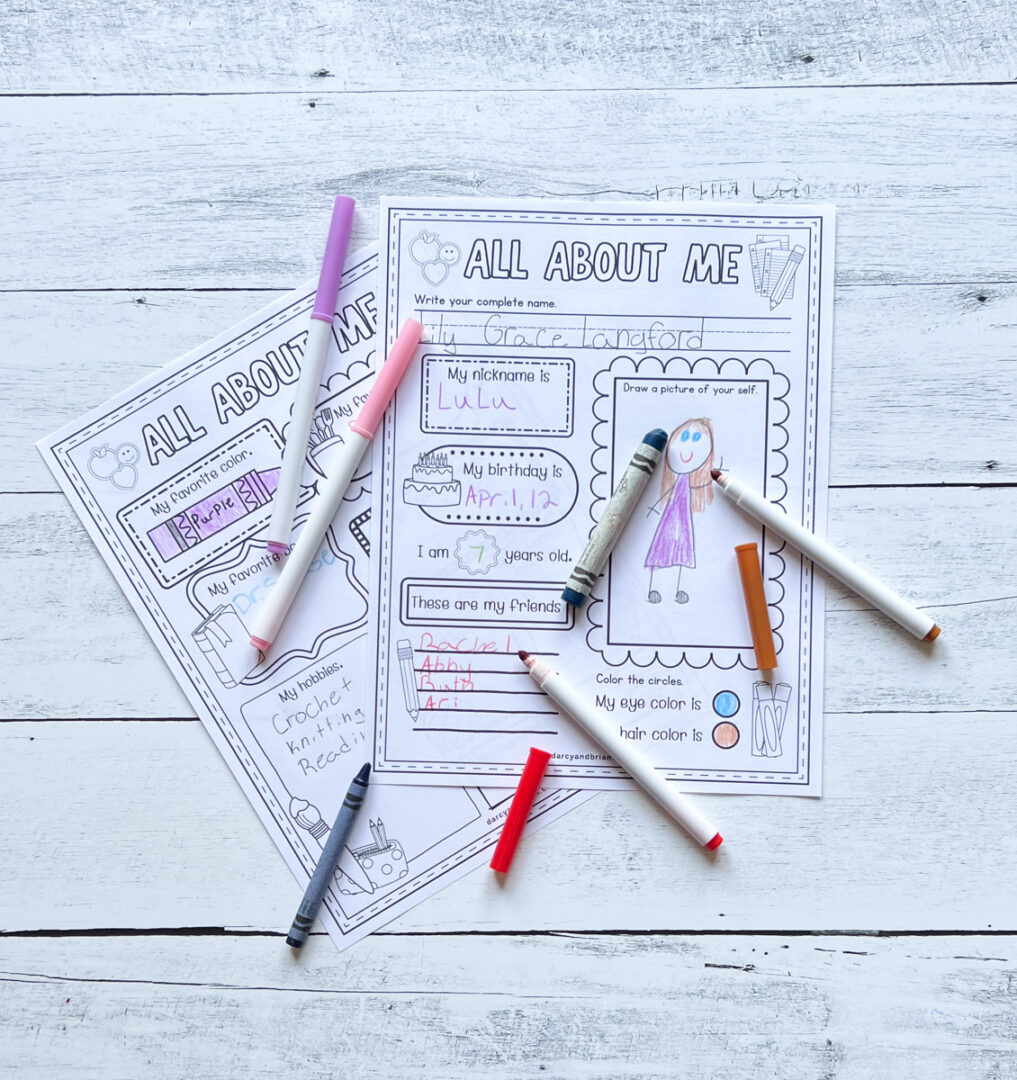 ALL ABOUT ME
Write your complete name.
Lily Grace Langford
My nickname is
LuLu
Draw a picture of your self.
My birthday is
Apr.1, 12
I am 7 years old.
These are my friends
Rachel
Abby
Ruth
Ari
Color the circles.
My eye color is
hair color is
ALL ABOUT ME
My favorite color.
Purple
My favorite
My hobbies.
Crochet
knitting